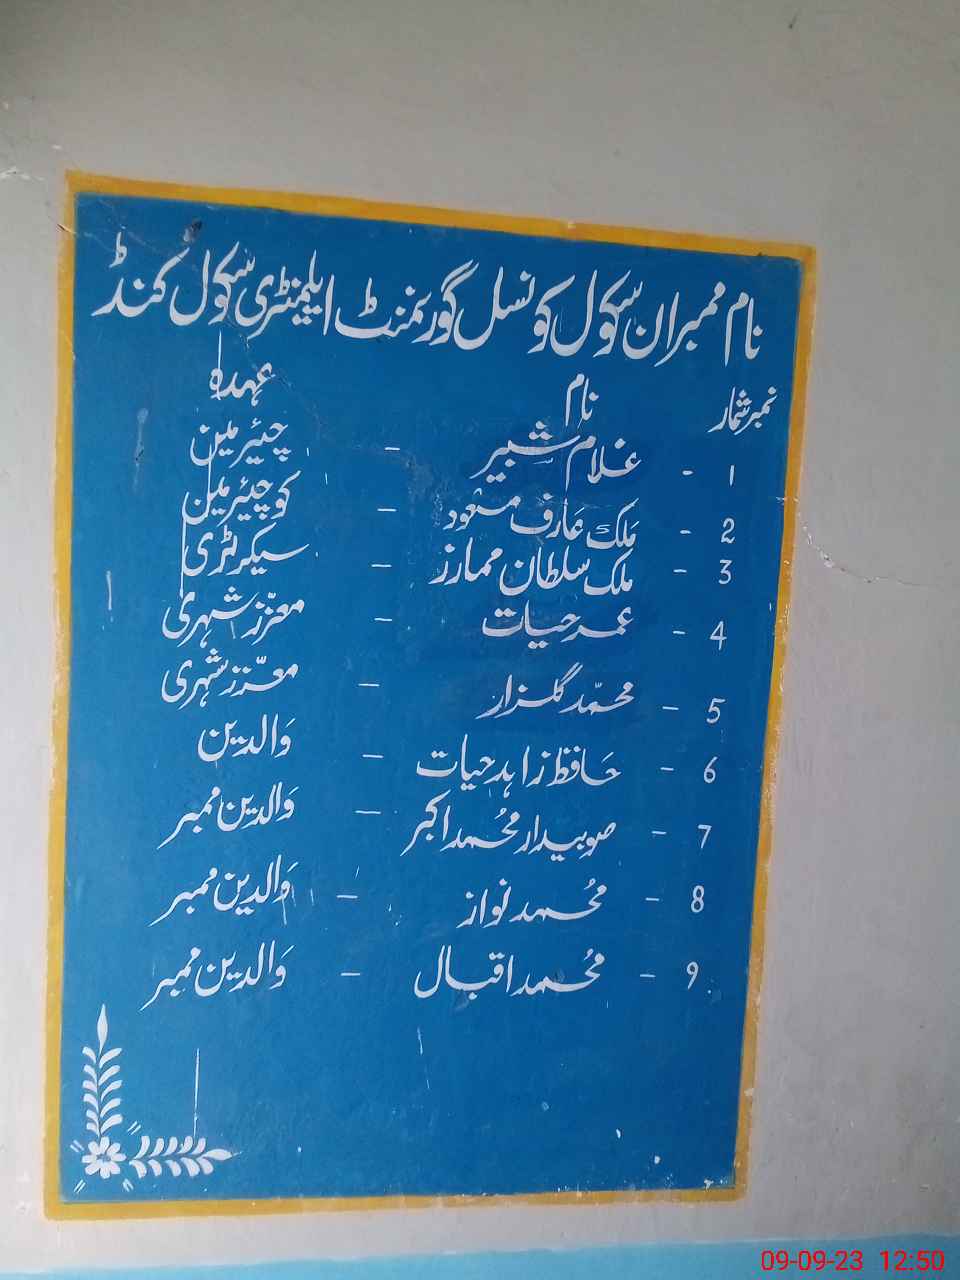 نام ممبران سکول کونسل گورنمنٹ ایلیمنٹری سکول کنڈ
نمبر شمار نام عہدہ
1 - غلام شبیر - چیئرمین
2 - ملک عارف مسعود - کو چیئرمین
3 - ملک سلطان ممارز - سیکرٹری
4 - عمر حیات - معزز شہری
5 - محمد گلزار - معزز شہری
6 - حافظ زاہد حیات - والدین
7 - صوبیدار محمد اکبر - والدین ممبر
8 - محمد نواز - والدین ممبر
9 - محمد اقبال - والدین ممبر
09-09-23 12:50